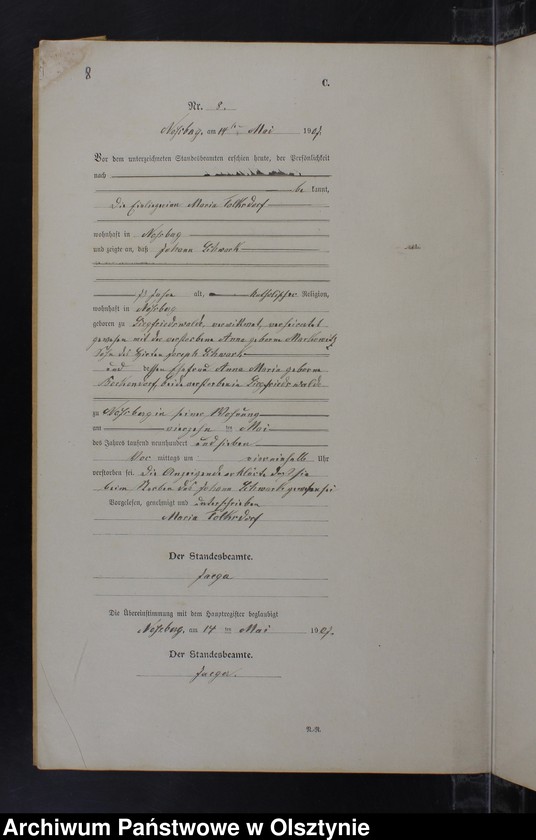 8
C.
Nr. 8.
Noßberg, am 14ten Mai 1907.
Vor dem unterzeichneten Standesbeamten erschien heute, der Persönlichkeit
nach
be kannt,
die Maria Volkrdorf
wohnhaft in Noßberg
und zeigte an, daß Johann Schwark
73 Jahre alt, katholischer Religion,
wohnhaft in Noßberg
geboren zu Siegfriedswalde, verwittwet, verheiratet
gewesen mit der verstorbenen Anna geborne
Sohn des Hirten Joseph Schwark
und dessen Ehefrau Anna Maria geborne
beide verstorben in Siegfriedswalde
zu Noßberg in seiner Wohnung
am vierzehn ten Mai
des Jahres tausend neunhundert und sieben
Vor mittags um viereinhalb Uhr
verstorben sei. Die Anzeigende erklärte daß sie
beim Sterben des Johann Schwark gewesen sei
Vorgelesen, genehmigt und unterschrieben
Maria Volkrdorf
Der Standesbeamte.
Jaega
Die Übereinstimmung mit dem Hauptregister beglaubigt
Noßberg, am 14 ten Mai 1907.
Der Standesbeamte.
Jaega.
Archiwum Państwowe w Olsztynie